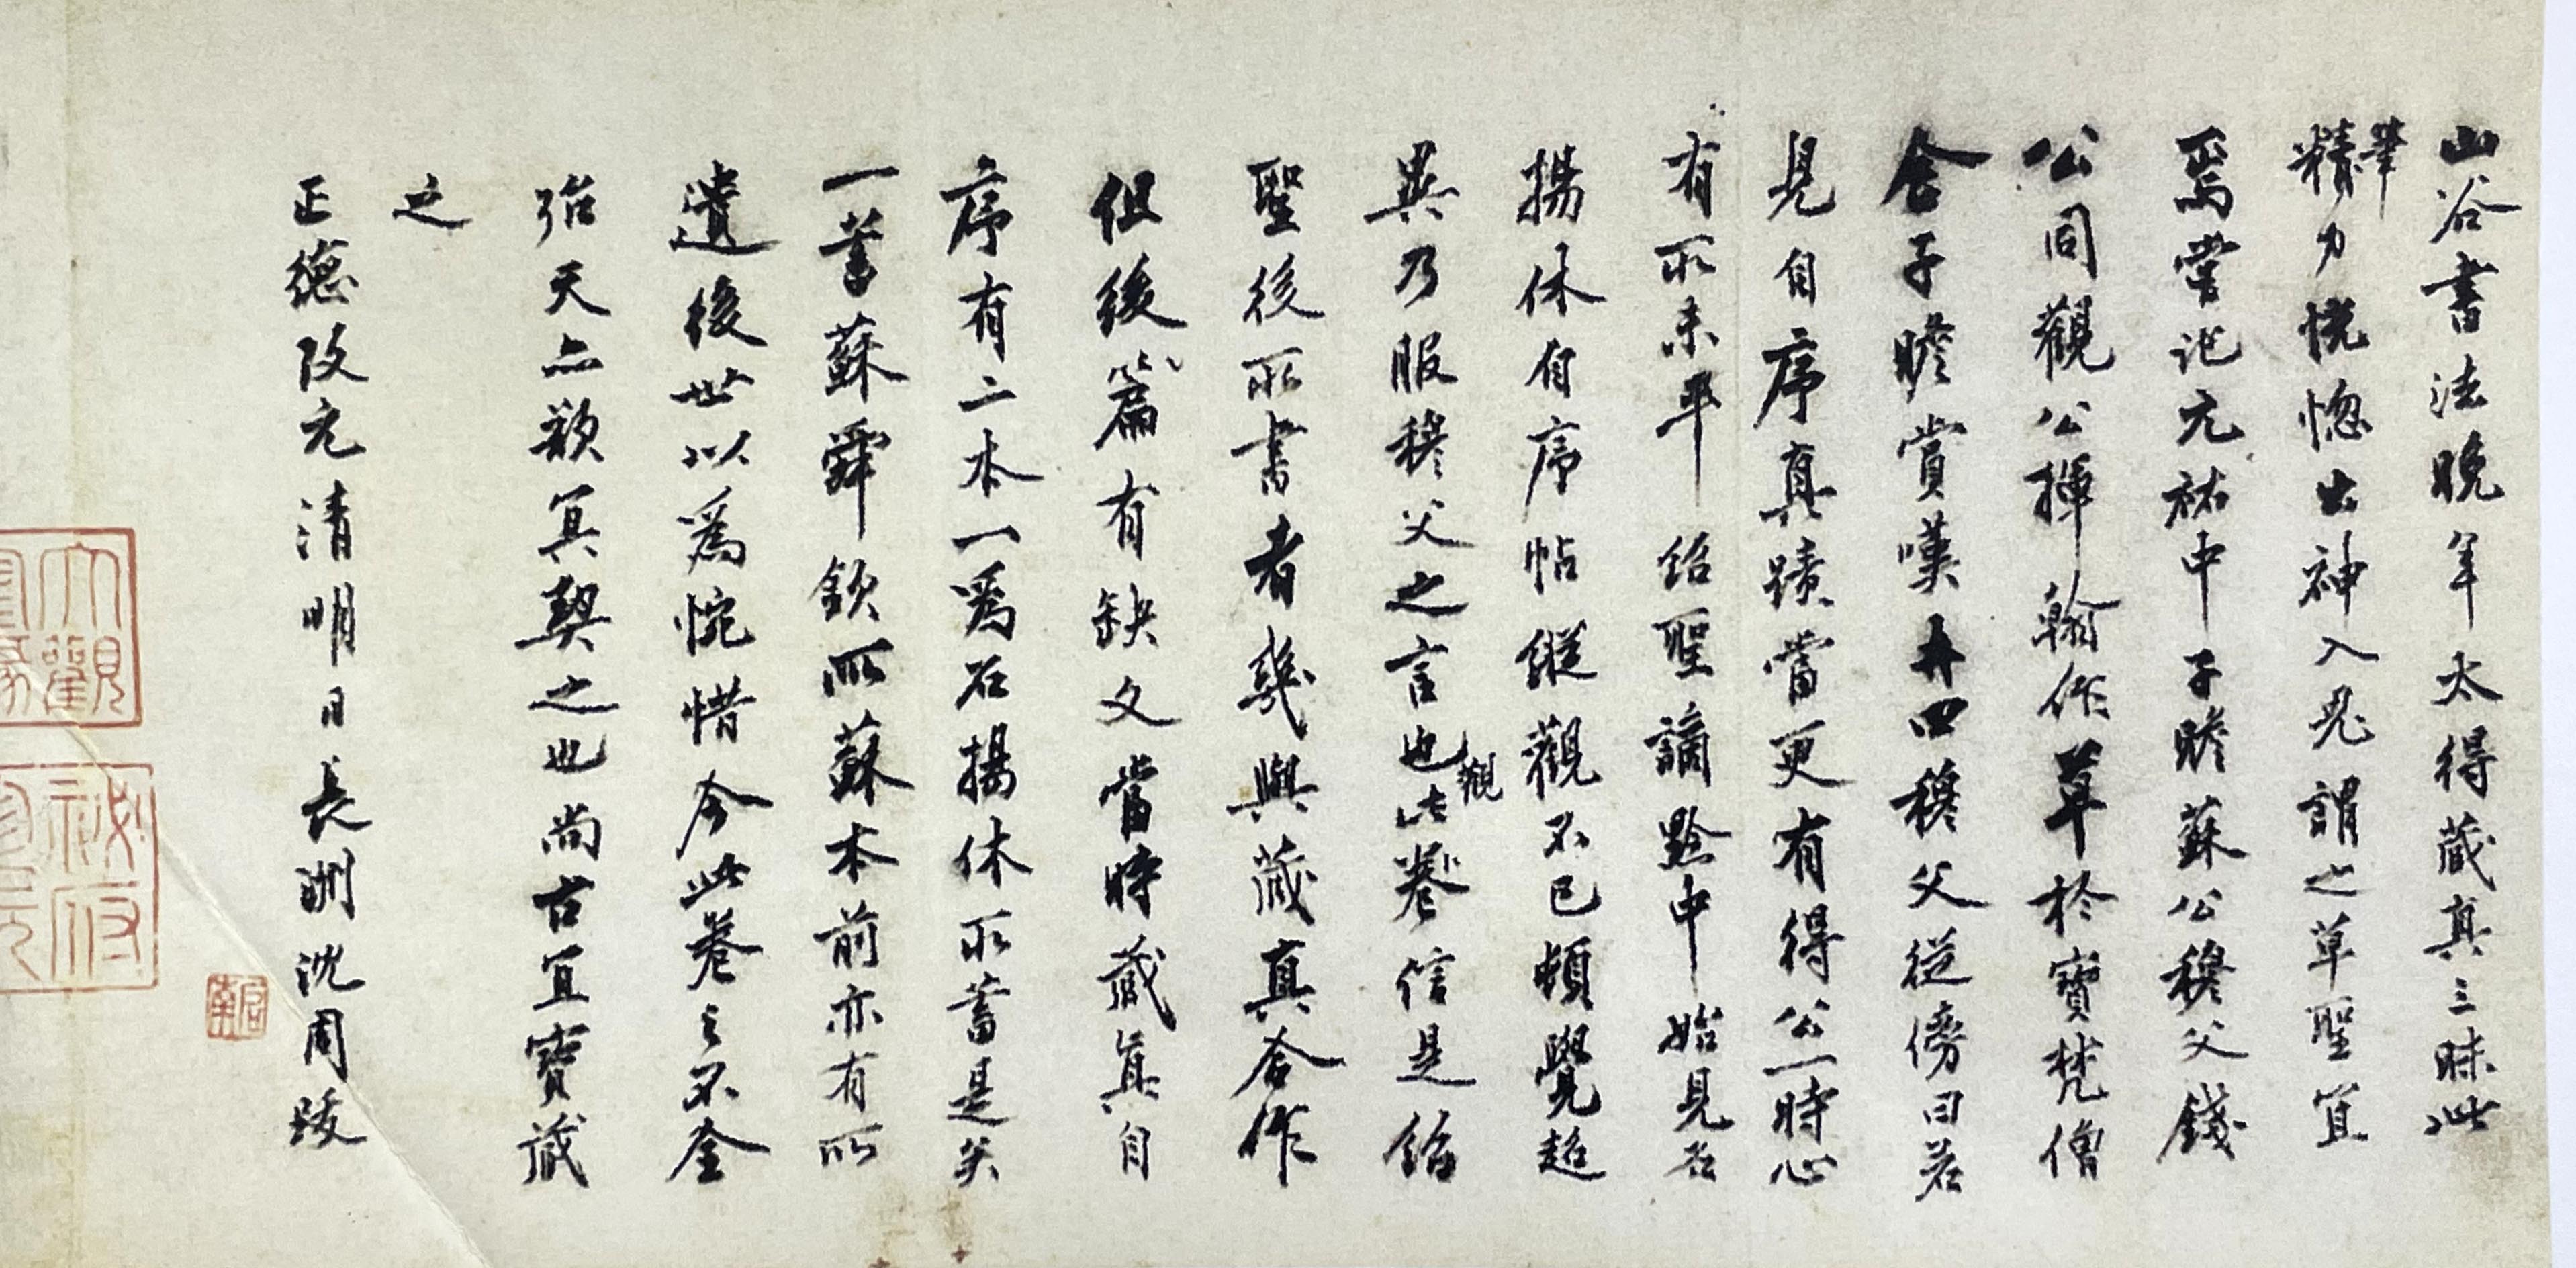 山谷書法晚年太得藏真三昧此
筆精力恍惚出神入鬼謂之草聖宜
焉嘗記元祐中子瞻蘇公穆父錢
公同觀公揮翰作草於寶梵僧
舍子瞻賞嘆再四穆父從傍曰若
見自序真蹟當更有得公一時心
有所未平紹聖謫黔中始見石
揚休自序帖縱觀不已頓覺超
異乃服穆父之言也觀此卷信是紹
聖後所書者幾與藏真合作
但後篇有缺文當時藏真自
序有二本一為石揚休所蓄是矣
一蓄蘇舜欽所蘇本前亦有所
遺後世以為惋惜今此卷之不全
殆天亦欲冥契之也尚古宜寶藏
之
正德改元清明日長洲沈周跋
啟南
大觀
秘府